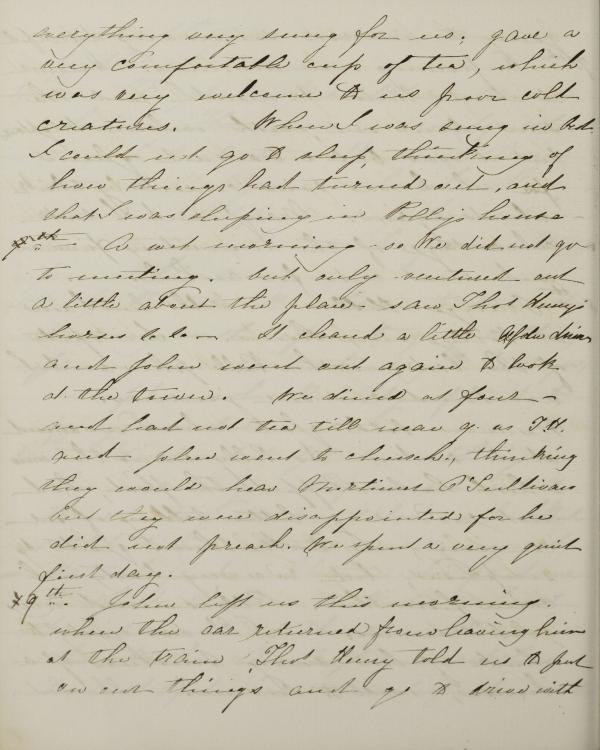 everything very snug for us; gave a
very comfortable cup of tea, which
was very welcome to us poor cold
creatures. When I was snug in bed
I could not go to sleep, thinking of
how things had turned out, and
that I was sleeping in Polly's house
A wet morning - so We did not go
to meeting. but only ventured out
a little about the place - saw Thos Henry's
horses &c &c — It cleared a little before dinner
and John went out again to look
at the town. We dined at four -
and had not tea till near 9. as T.H.
and John went to church, thinking
they would hear Mortimer O'Sullivan
but they were disappointed for he
did not preach. We spent a very quiet
first day.
x 9th. John left us this morning.
when the car returned from leaving him
at the train Thos Henry told us to put
on our things and go to drive with